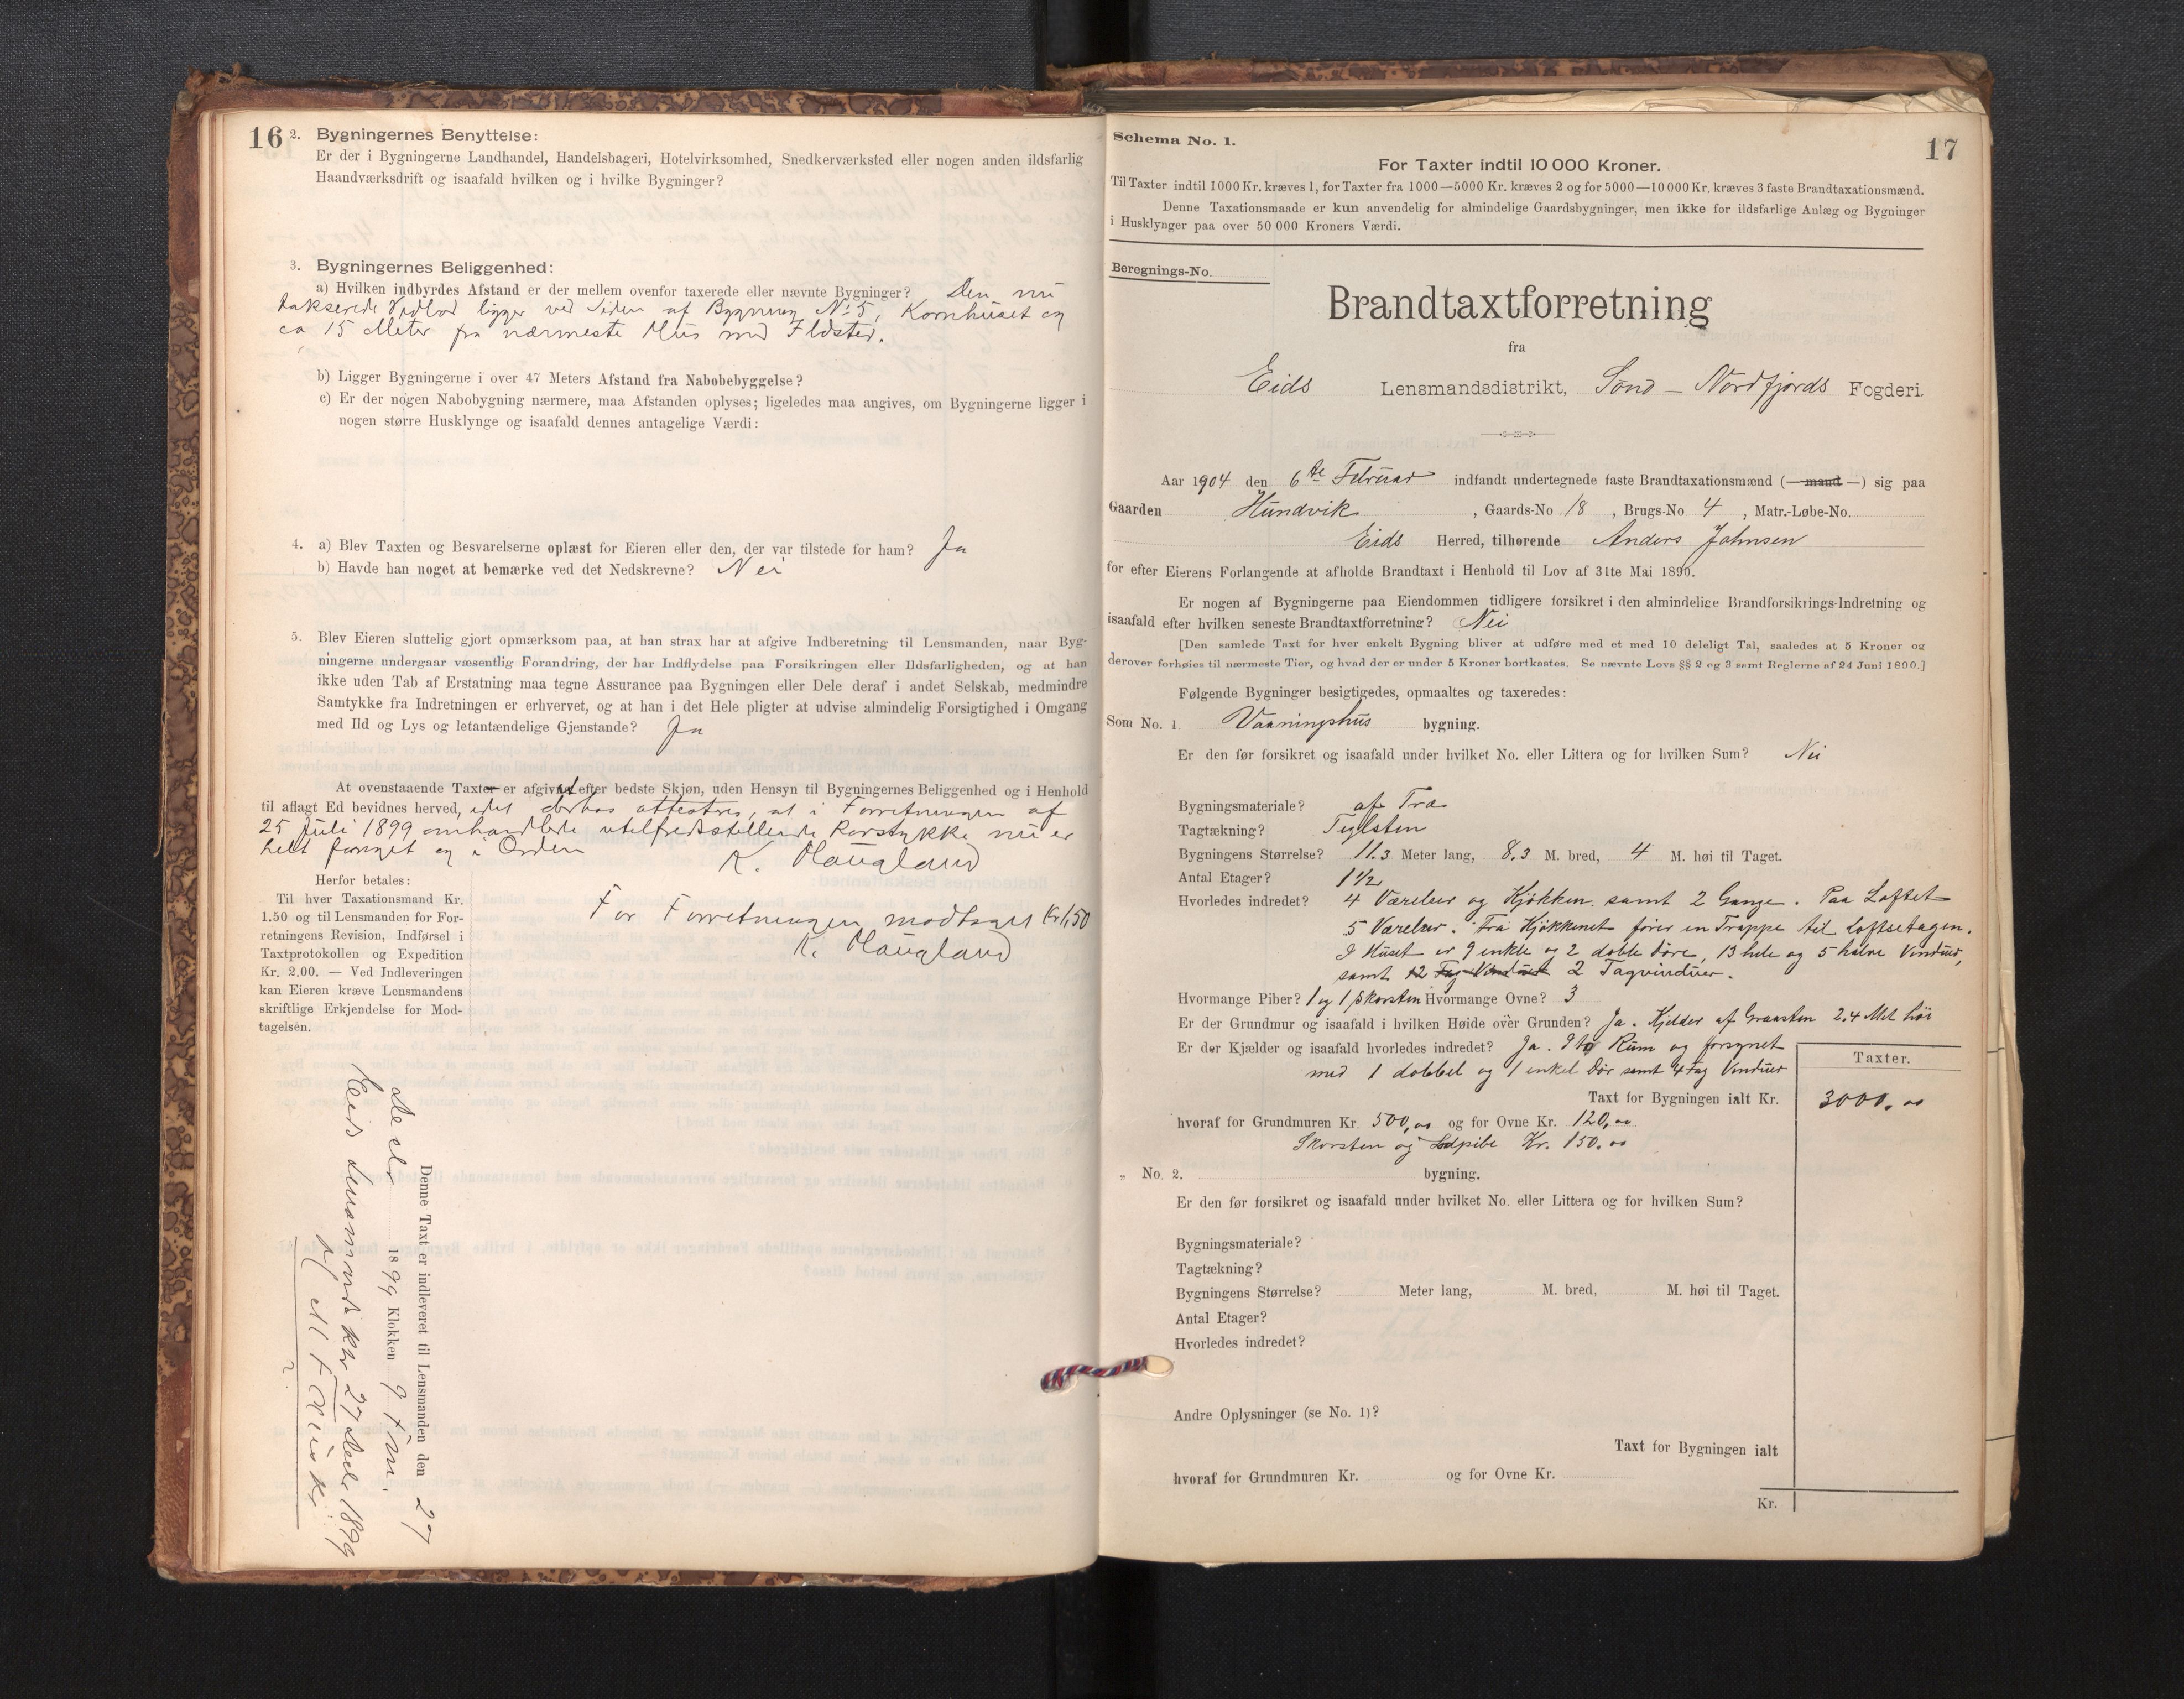 16
2. Bygningernes Benyttelse:
Er der i Bygningerne Landhandel, Handelsbageri, Hotelvirksomhed, Snedkerværksted eller nogen anden ildsfarlig
Haandværksdrift og isaafald hvilken og i hvilke Bygninger?
3. Bygningernes Beliggenhed:
a) Hvilken indbyrdes Afstand er der mellem ovenfor taxerede eller nævnte Bygninger? Den nu
takserede Vedbod ligger ved Siden af Bygning No 5, Kornhuset og
ca 15 Meter fra nærmeste Hus med Ildsted.
b) Ligger Bygningerne i over 47 Meters Afstand fra Nabobebyggelse?
c) Er der nogen Nabobygning nærmere, maa Afstanden oplyses; ligeledes maa angives, om Bygningerne ligger i
nogen større Husklynge og isaafald dennes antagelige Værdi:
4. a) Blev Taxten og Besvarelserne oplæst for Eieren eller den, der var tilstede for ham? Ja
b) Havde han noget at bemærke ved det Nedskrevne? Nei
5. Blev Eieren sluttelig gjort opmærksom paa, at han strax har at afgive Indberetning til Lensmanden, naar Byg-
ningerne undergaar væsentlig Forandring, der har Indflydelse paa Forsikringen eller Ildsfarligheden, og at han
ikke uden Tab af Erstatning maa tegne Assurance paa Bygningen eller Dele deraf i andet Selskab, medmindre
Samtykke fra Indretningen er erhvervet, og at han i det Hele pligter at udvise almindelig Forsigtighed i Omgang
med Ild og Lys og letantændelige Gjenstande? Ja
At ovenstaaende Taxter er afgivet efter bedste Skjøn, uden Hensyn til Bygningernes Beliggenhed og i Henhold
til aflagt Ed bevidnes herved, idet derhos attesteres, at i Forretningen af
25 Juli 1899 omhandlede utilfredsstillende Rørstykke nu er
helt fornyet og i Orden
K. Haugland
Herfor betales:
Til hver Taxationsmand Kr.
1.50 og til Lensmanden for For-
retningens Revision, Indførsel i
Taxtprotokollen og Expedition
Kr. 2.00. — Ved Indleveringen
kan Eieren kræve Lensmandens
skriftlige Erkjendelse for Mod-
tagelsen.
For Forretningen modtaget Kr 1,50
K. Haugland
Denne Taxt er indleveret til Lensmanden den 27
Decbr 1899 Klokken 9 Fm.
Eids Lensmandskr 27 Decbr 1899
17
Schema No. 1.
For Taxter indtil 10 000 Kroner.
Til Taxter indtil 1000 Kr. kræves 1, for Taxter fra 1000—5000 Kr. kræves 2 og for 5000—10 000 Kr. kræves 3 faste Brandtaxationsmænd.
Denne Taxationsmaade er kun anvendelig for almindelige Gaardsbygninger, men ikke for ildsfarlige Anlæg og Bygninger
i Husklynger paa over 50 000 Kroners Værdi.
Beregnings-No.
Brandtaxtforretning
fra
Eids Lensmandsdistrikt, Sønd-Nordfjords Fogderi.
Aar 1904 den 6te Februar indfandt undertegnede faste Brandtaxationsmænd (— mand —) sig paa
Gaarden Hundvik, Gaards-No 18, Brugs-No 4, Matr.-Løbe-No.
Eids Herred, tilhørende Anders Johnsen
for efter Eierens Forlangende at afholde Brandtaxt i Henhold til Lov af 31te Mai 1890.
Er nogen af Bygningerne paa Eiendommen tidligere forsikret i den almindelige Brandforsikrings-Indretning og
isaafald efter hvilken seneste Brandtaxtforretning? Nei
[Den samlede Taxt for hver enkelt Bygning bliver at udføre med et med 10 deleligt Tal, saaledes at 5 Kroner og
derover forhøies til nærmeste Tier, og hvad der er under 5 Kroner bortkastes. Se nævnte Lovs §§ 2 og 3 samt Reglerne af 24 Juni 1890.]
Følgende Bygninger besigtigedes, opmaaltes og taxeredes:
Som No. 1. Vaaningshus bygning.
Er den før forsikret og isaafald under hvilket No. eller Littera og for hvilken Sum? Nei
Bygningsmateriale? af Træ
Tagtækning? Teglsten
Bygningens Størrelse? 11.3 Meter lang, 8.3 M. bred, 4 M. høi til Taget.
Antal Etager? 1 1/2
Hvorledes indredet? 4 Værelser og Kjøkken samt 2 Gange. Paa Loftet
5 Værelser. Fra Kjøkkenet fører en Trappe til Loftsetagen.
I Huset er 9 enkle og 2 doble Døre, 13 hele og 5 halve Vinduer,
samt 12 Fag Vinduer 2 Tagvinduer.
Hvormange Piber? 1 og 1 Skorsten Hvormange Ovne? 3
Er der Grundmur og isaafald i hvilken Høide over Grunden? Ja. Kjelder af Graasten 2.4 Met høi
Er der Kjælder og isaafald hvorledes indredet? Ja. I to Rum og forsynet
med 1 dobbel og 1 enkel Dør samt 4 Fag Vinduer
Taxter.
Taxt for Bygningen ialt Kr. 3000,00
hvoraf for Grundmuren Kr. 500,00 og for Ovne Kr. 120,00
Skorsten og pibe Kr. 150.00
„ No. 2. bygning.
Er den før forsikret og isaafald under hvilket No. eller Littera og for hvilken Sum?
Bygningsmateriale?
Tagtækning?
Bygningens Størrelse? Meter lang, M. bred, M. høi til Taget.
Antal Etager?
Hvorledes indredet?
Andre Oplysninger (se No. 1)?
Taxt for Bygningen ialt
hvoraf for Grundmuren Kr. og for Ovne Kr.
Kr.